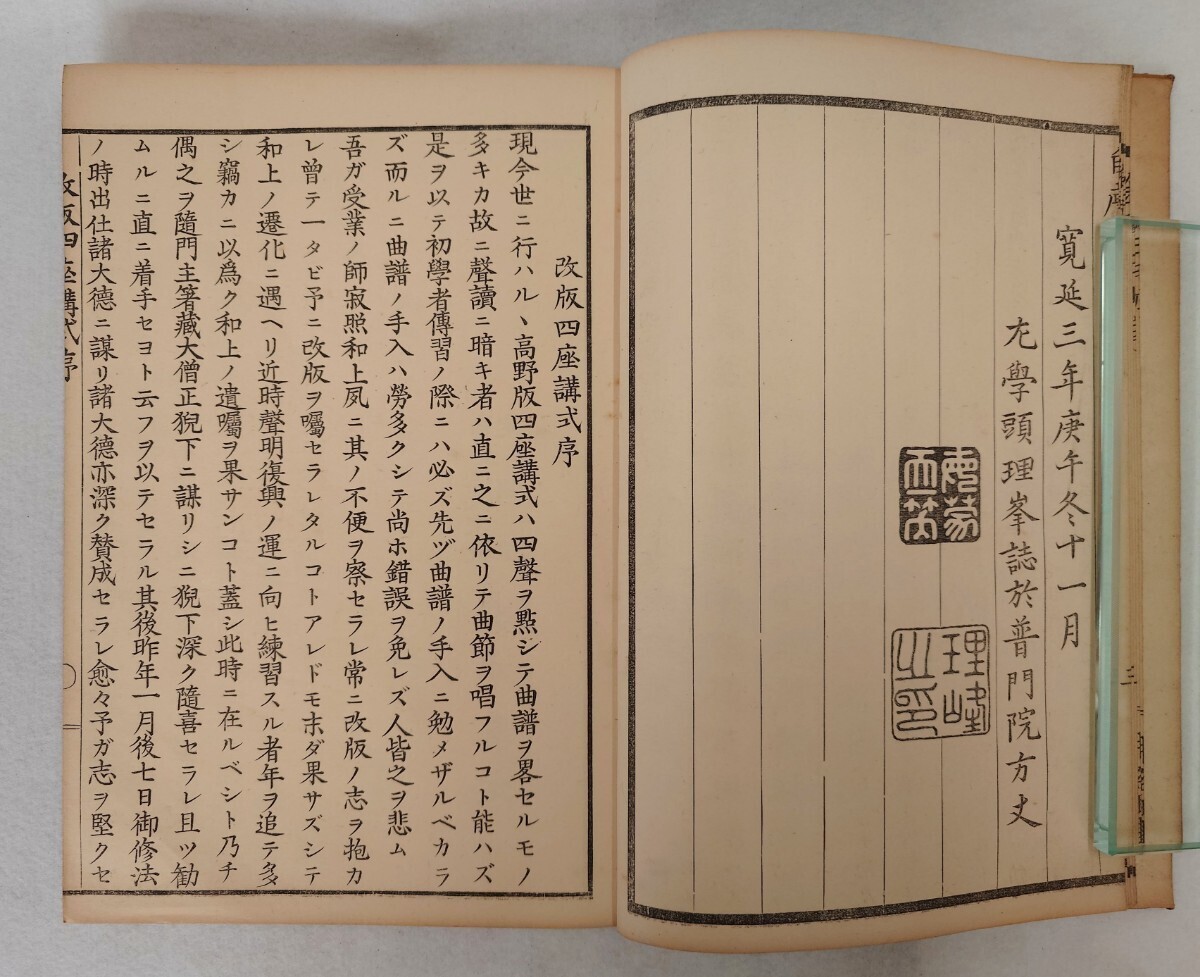 寛延三年庚午冬十一月
左學頭理峯誌於普門院方丈
理峰之印
三
改版四座講式序
現今世ニ行ハルヽ高野版四座講式ハ四聲ヲ點シテ曲譜ヲ畧セルモノ
多キカ故ニ聲讀ニ暗キ者ハ直ニ之ニ依リテ曲節ヲ唱フルコト能ハズ
是ヲ以テ初學者傳習ノ際ニハ必ズ先ヅ曲譜ノ手入ニ勉メザルベカラ
ズ而ルニ曲譜ノ手入ハ勞多クシテ尚ホ錯誤ヲ免レズ人皆之ヲ悲ム
吾ガ受業ノ師寂照和上夙ニ其ノ不便ヲ察セラレ常ニ改版ノ志ヲ抱カ
レ曾テ一タビ予ニ改版ヲ囑セラレタルコトアレドモ未ダ果サズシテ
和上ノ遷化ニ遇ヘリ近時聲明復興ノ運ニ向ヒ練習スル者年ヲ追テ多
シ竊カニ以爲ク和上ノ遺囑ヲ果サンコト蓋シ此時ニ在ルベシト乃チ
偶之ヲ隨門主箸藏大僧正猊下ニ謀リシニ猊下深ク隨喜セラレ且ツ勸
ムルニ直ニ着手セヨト云フヲ以テセラル其後昨年一月後七日御修法
ノ時出仕諸大德ニ謀リ諸大德亦深ク賛成セラレ愈々予ガ志ヲ堅クセ
改版四座講式序
一